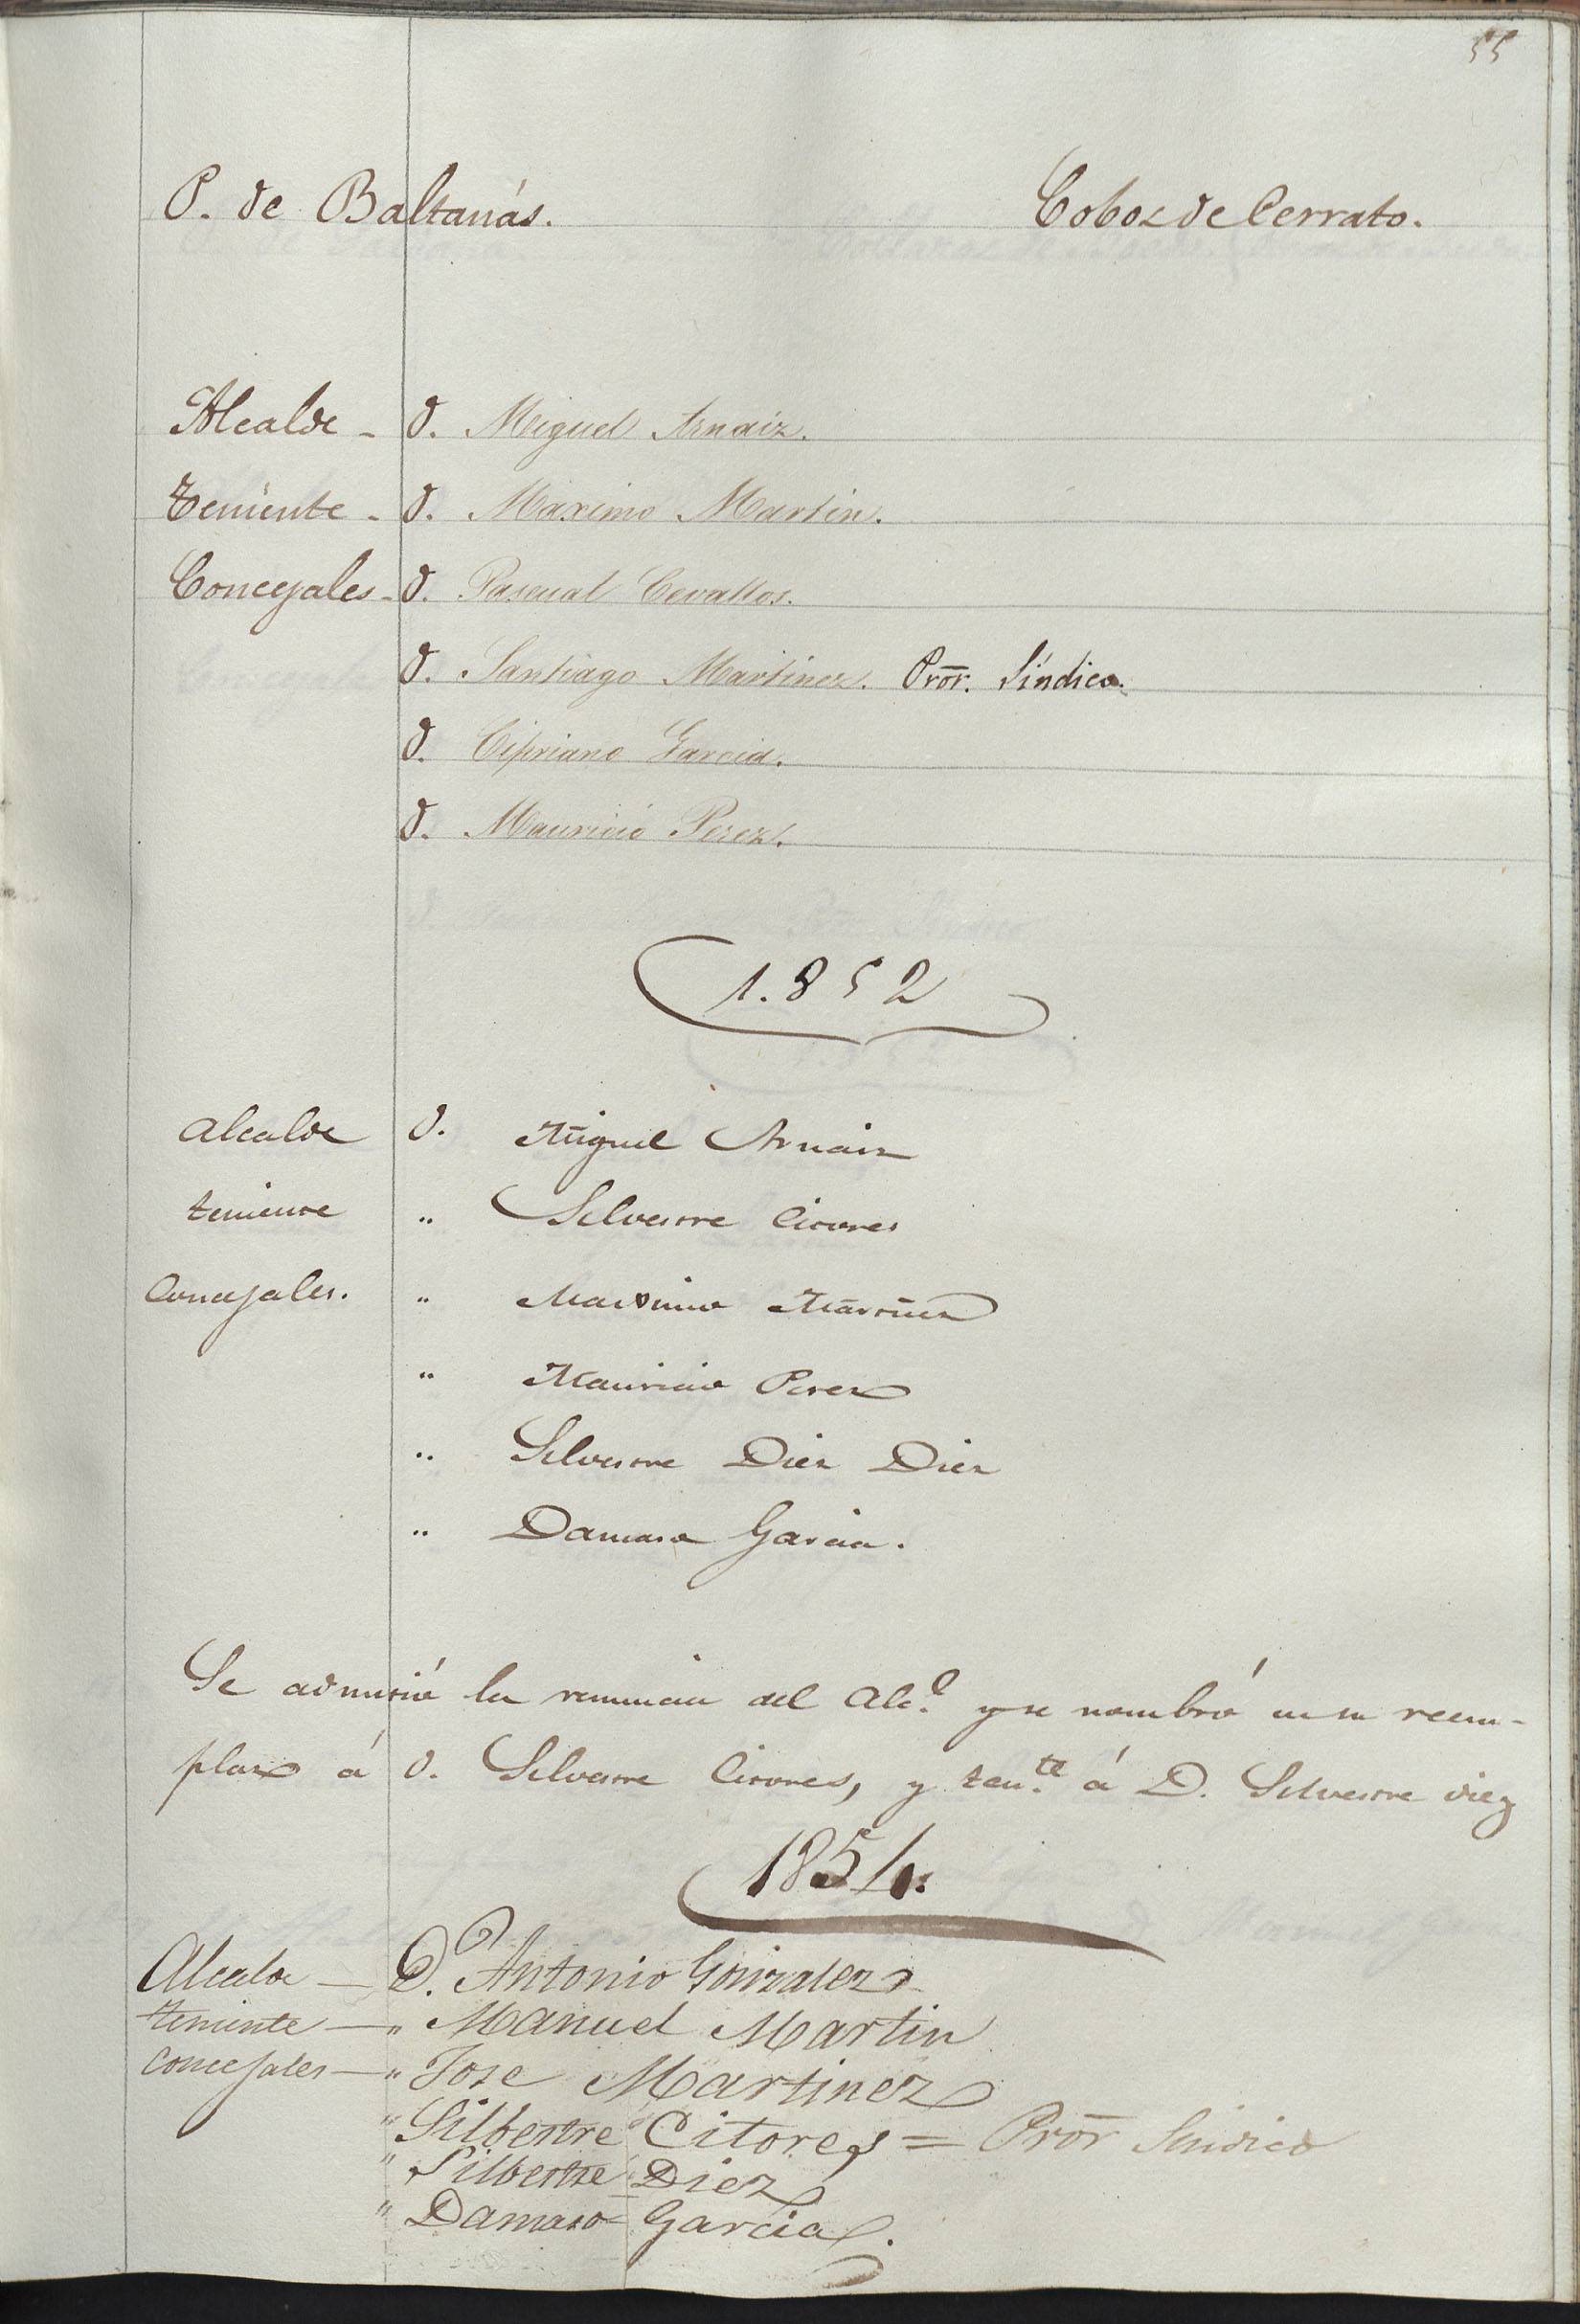 55
P. de Baltanás. Cobos de Cerrato.
Alcalde - D. Miguel Arnaiz.
Teniente - D. Maximo Martin.
Concejales - D. Pascual Cevallos.
D. Santiago Martinez. Pror. Síndico.
D. Cipriano Garcia.
D. Mauricio Perez.
1.852
Alcalde D. Miguel Arnaiz
teniente " Silvestre Citores
Concejales. " Maximo Martinez
" Mauricio Perez
" Silvestre Diez Diez
" Damaso Garcia.
Se admitió la renuncia del Alce. y se nombró en su reem-
plazo á D. Silvestre Citores, y tente. á D. Silvestre diez
1854.
Alcalde — D. Antonio Gonzalez
teniente — " Manuel Martin
concejales — " Jose Martinez
" Silbestre Citores = Pror Sindico
" Silbestre Diez
" Damaso Garcia.